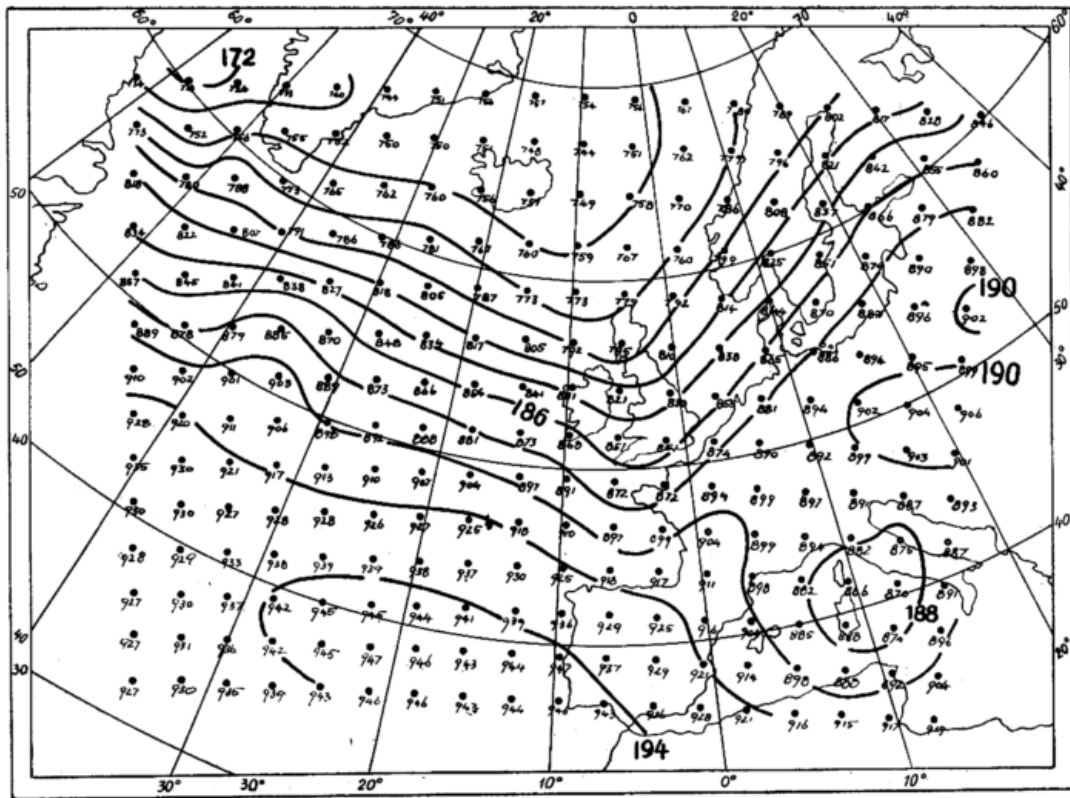 60° 60° 50° 40° 20° 10° 0 20° 30° 40° 60°
172
744 751 756 757 754 756 761 789 789 802 817 828 846
773 752 755 750 750 751 748 744 751 762 779 794 821 842 855 860
818 780 788 773 765 762 760 756 751 749 758 770 786 808 837 866 879 882
834 822 807 791 786 781 767 760 759 767 760 799 825 851 874 890 898
50
857 845 841 838 827 818 805 787 773 773 779 792 814 844 870 887 896 902
190
60°
889 878 879 885 870 848 834 817 805 792 810 838 865 886 894 895 899
190
60°
50°
910 902 901 903 889 873 866 854 841 831 821 830 881 894 902 904 906
186
928 920 911 906 898 892 888 881 873 868 851 874 890 892 899 913 901
40
935 930 921 917 913 910 907 904 897 891 872 872 894 899 897 891 887 893
40°
930 930 927 928 928 926 927 925 918 910 897 899 904 899 894 882 875 887
50°
928 929 933 938 939 939 938 937 930 925 918 917 911 898 882 866 870 891
188
927 930 937 942 945 945 944 941 939 936 929 925 885 888 874 896
40
20°
927 931 936 942 945 947 946 943 944 947 937 929 921 914 898 888 892 904
30
927 930 935 939 943 946 946 943 944 946 943 936 928 921 916 915 917 919
194
30° 20° 10° 0° 10°